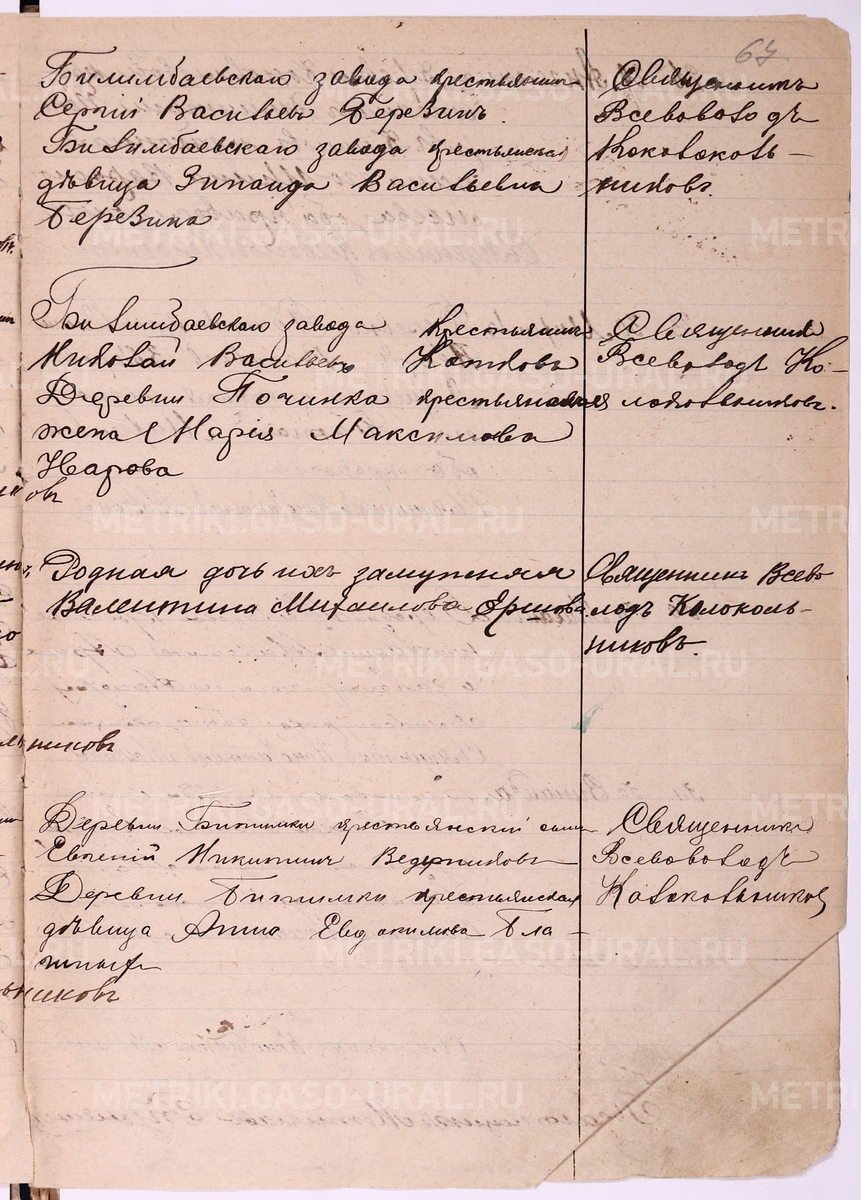 67
Билимбаевскаго завода крестьянинъ
Сергій Васильевъ Березинъ.
Билимбаевскаго завода крестьянская
дѣвица Зинаида Васильевна
Березина
Священникъ
Всеволодъ
Колоколь-
никовъ.
Билимбаевскаго завода крестьянинъ
Николай Васильевъ Котковъ
Деревни Починка крестьянская
жена Марія Максимова
Нарова
овъ
Священникъ
Всеволодъ Ко-
локольниковъ.
Родная дочь ихъ замужняя
Валентина Михаилова Ершова
Священникъ Всево
лодъ Колоколь-
никовъ.
никовъ
Деревни Битимки крестьянскій сынъ
Евгеній Никитинъ Ведерниковъ
Деревни Битимки крестьянская
дѣвица Анна Евдокимова Пла-
тыхъ
Священникъ
Всеволодъ
Колокольниковъ
ьниковъ
METRIKI.GASO-URAL.RU